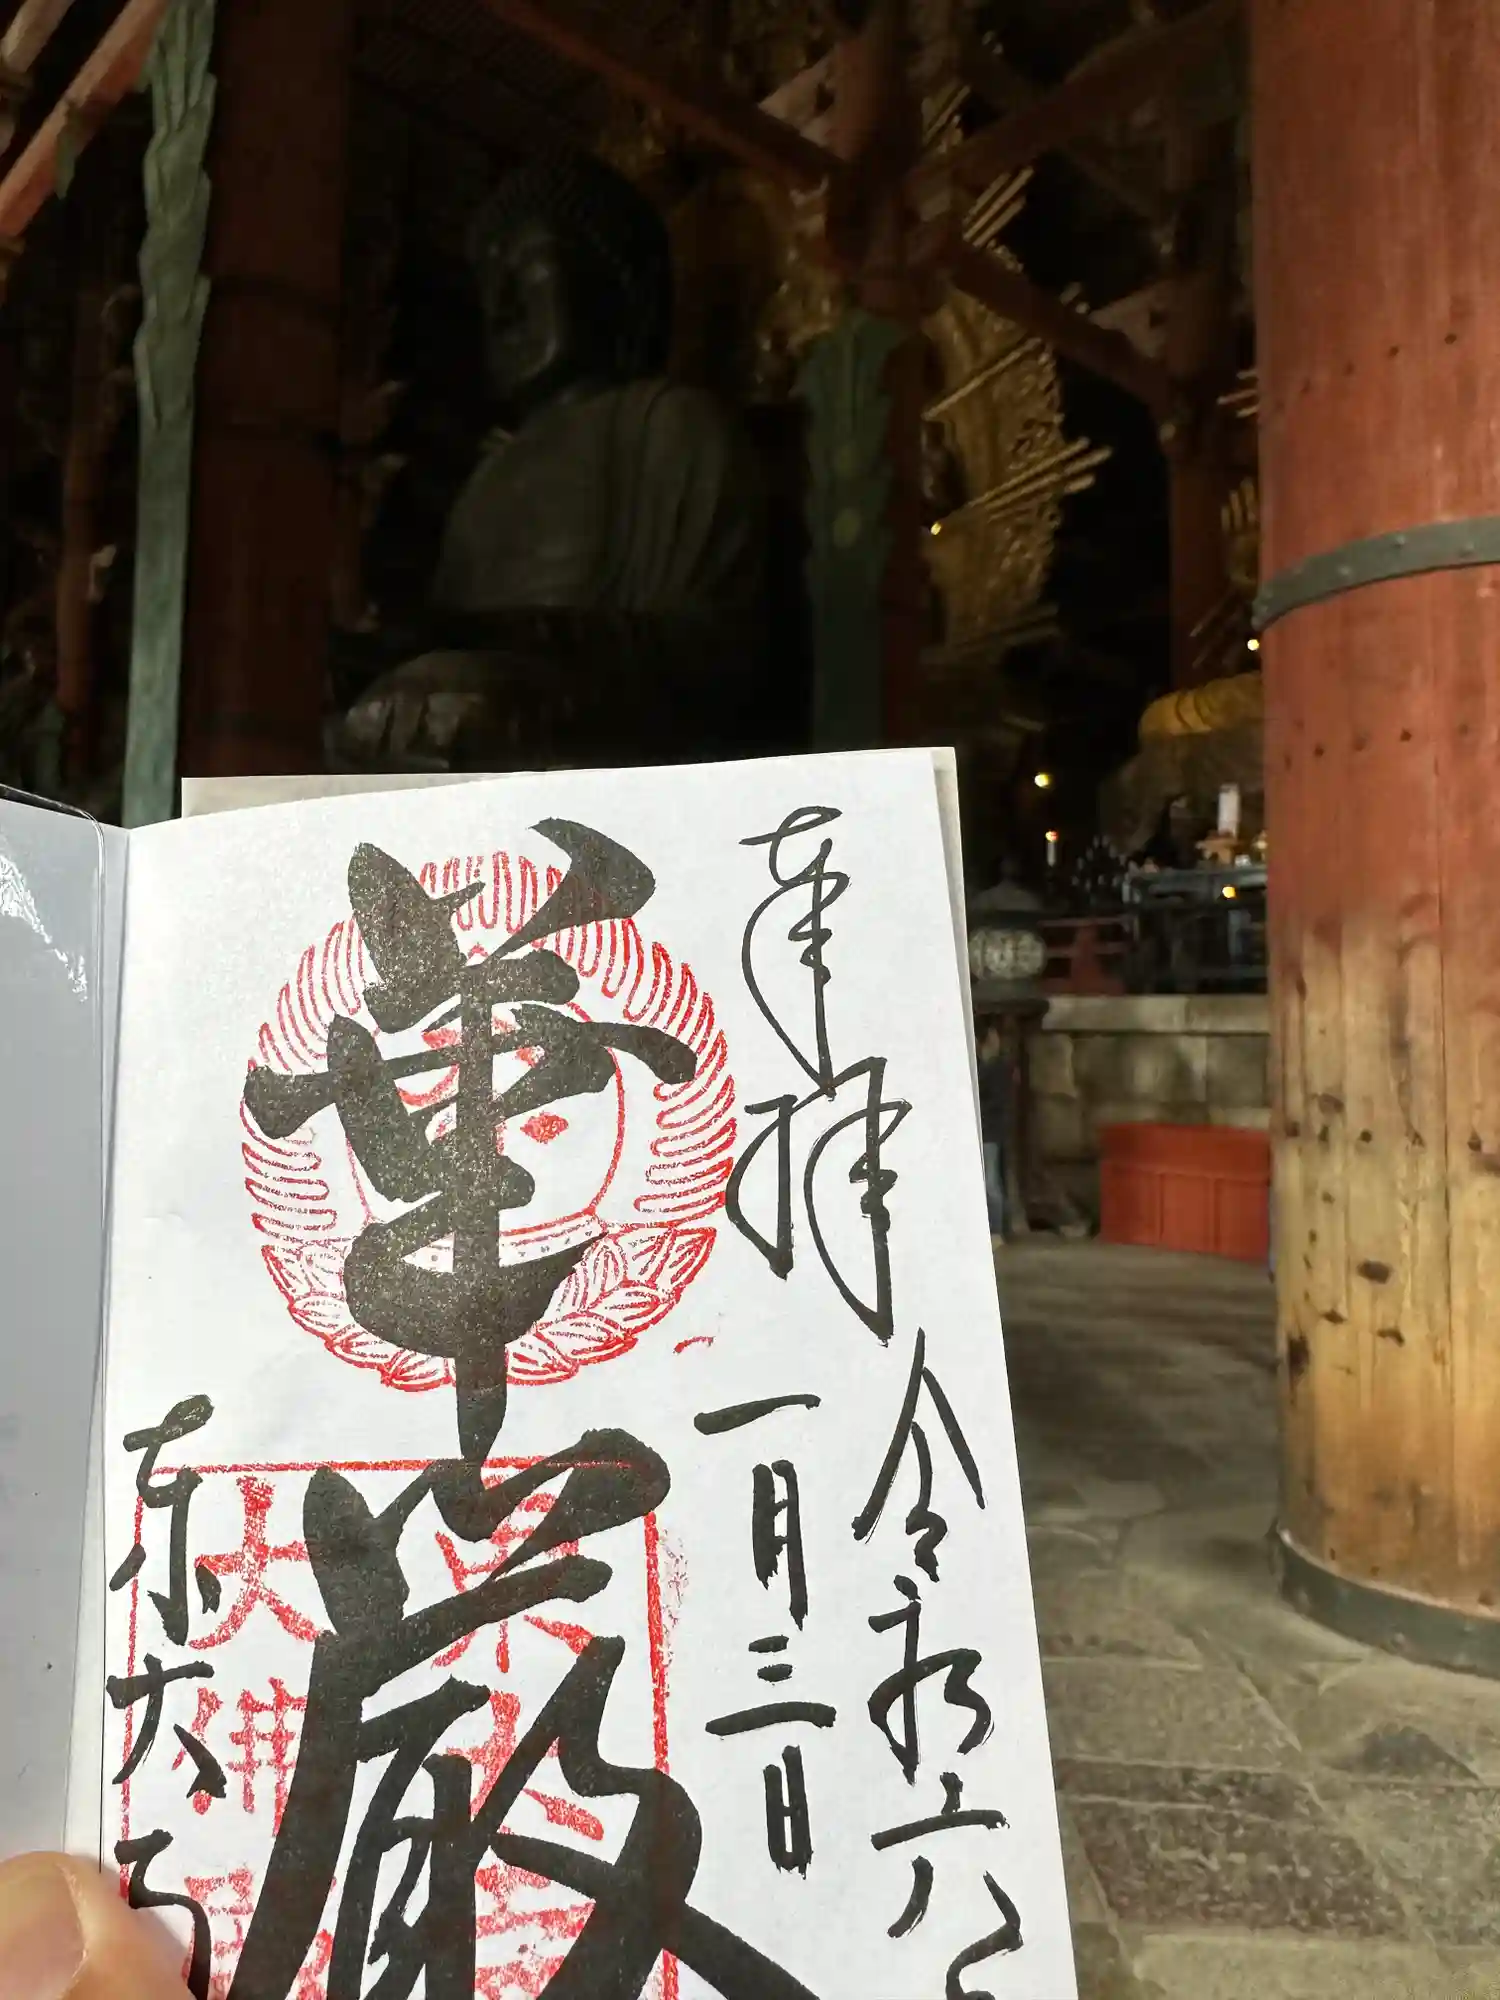 奉拝
令和六年
一月三日
華厳
東大寺
大佛殿